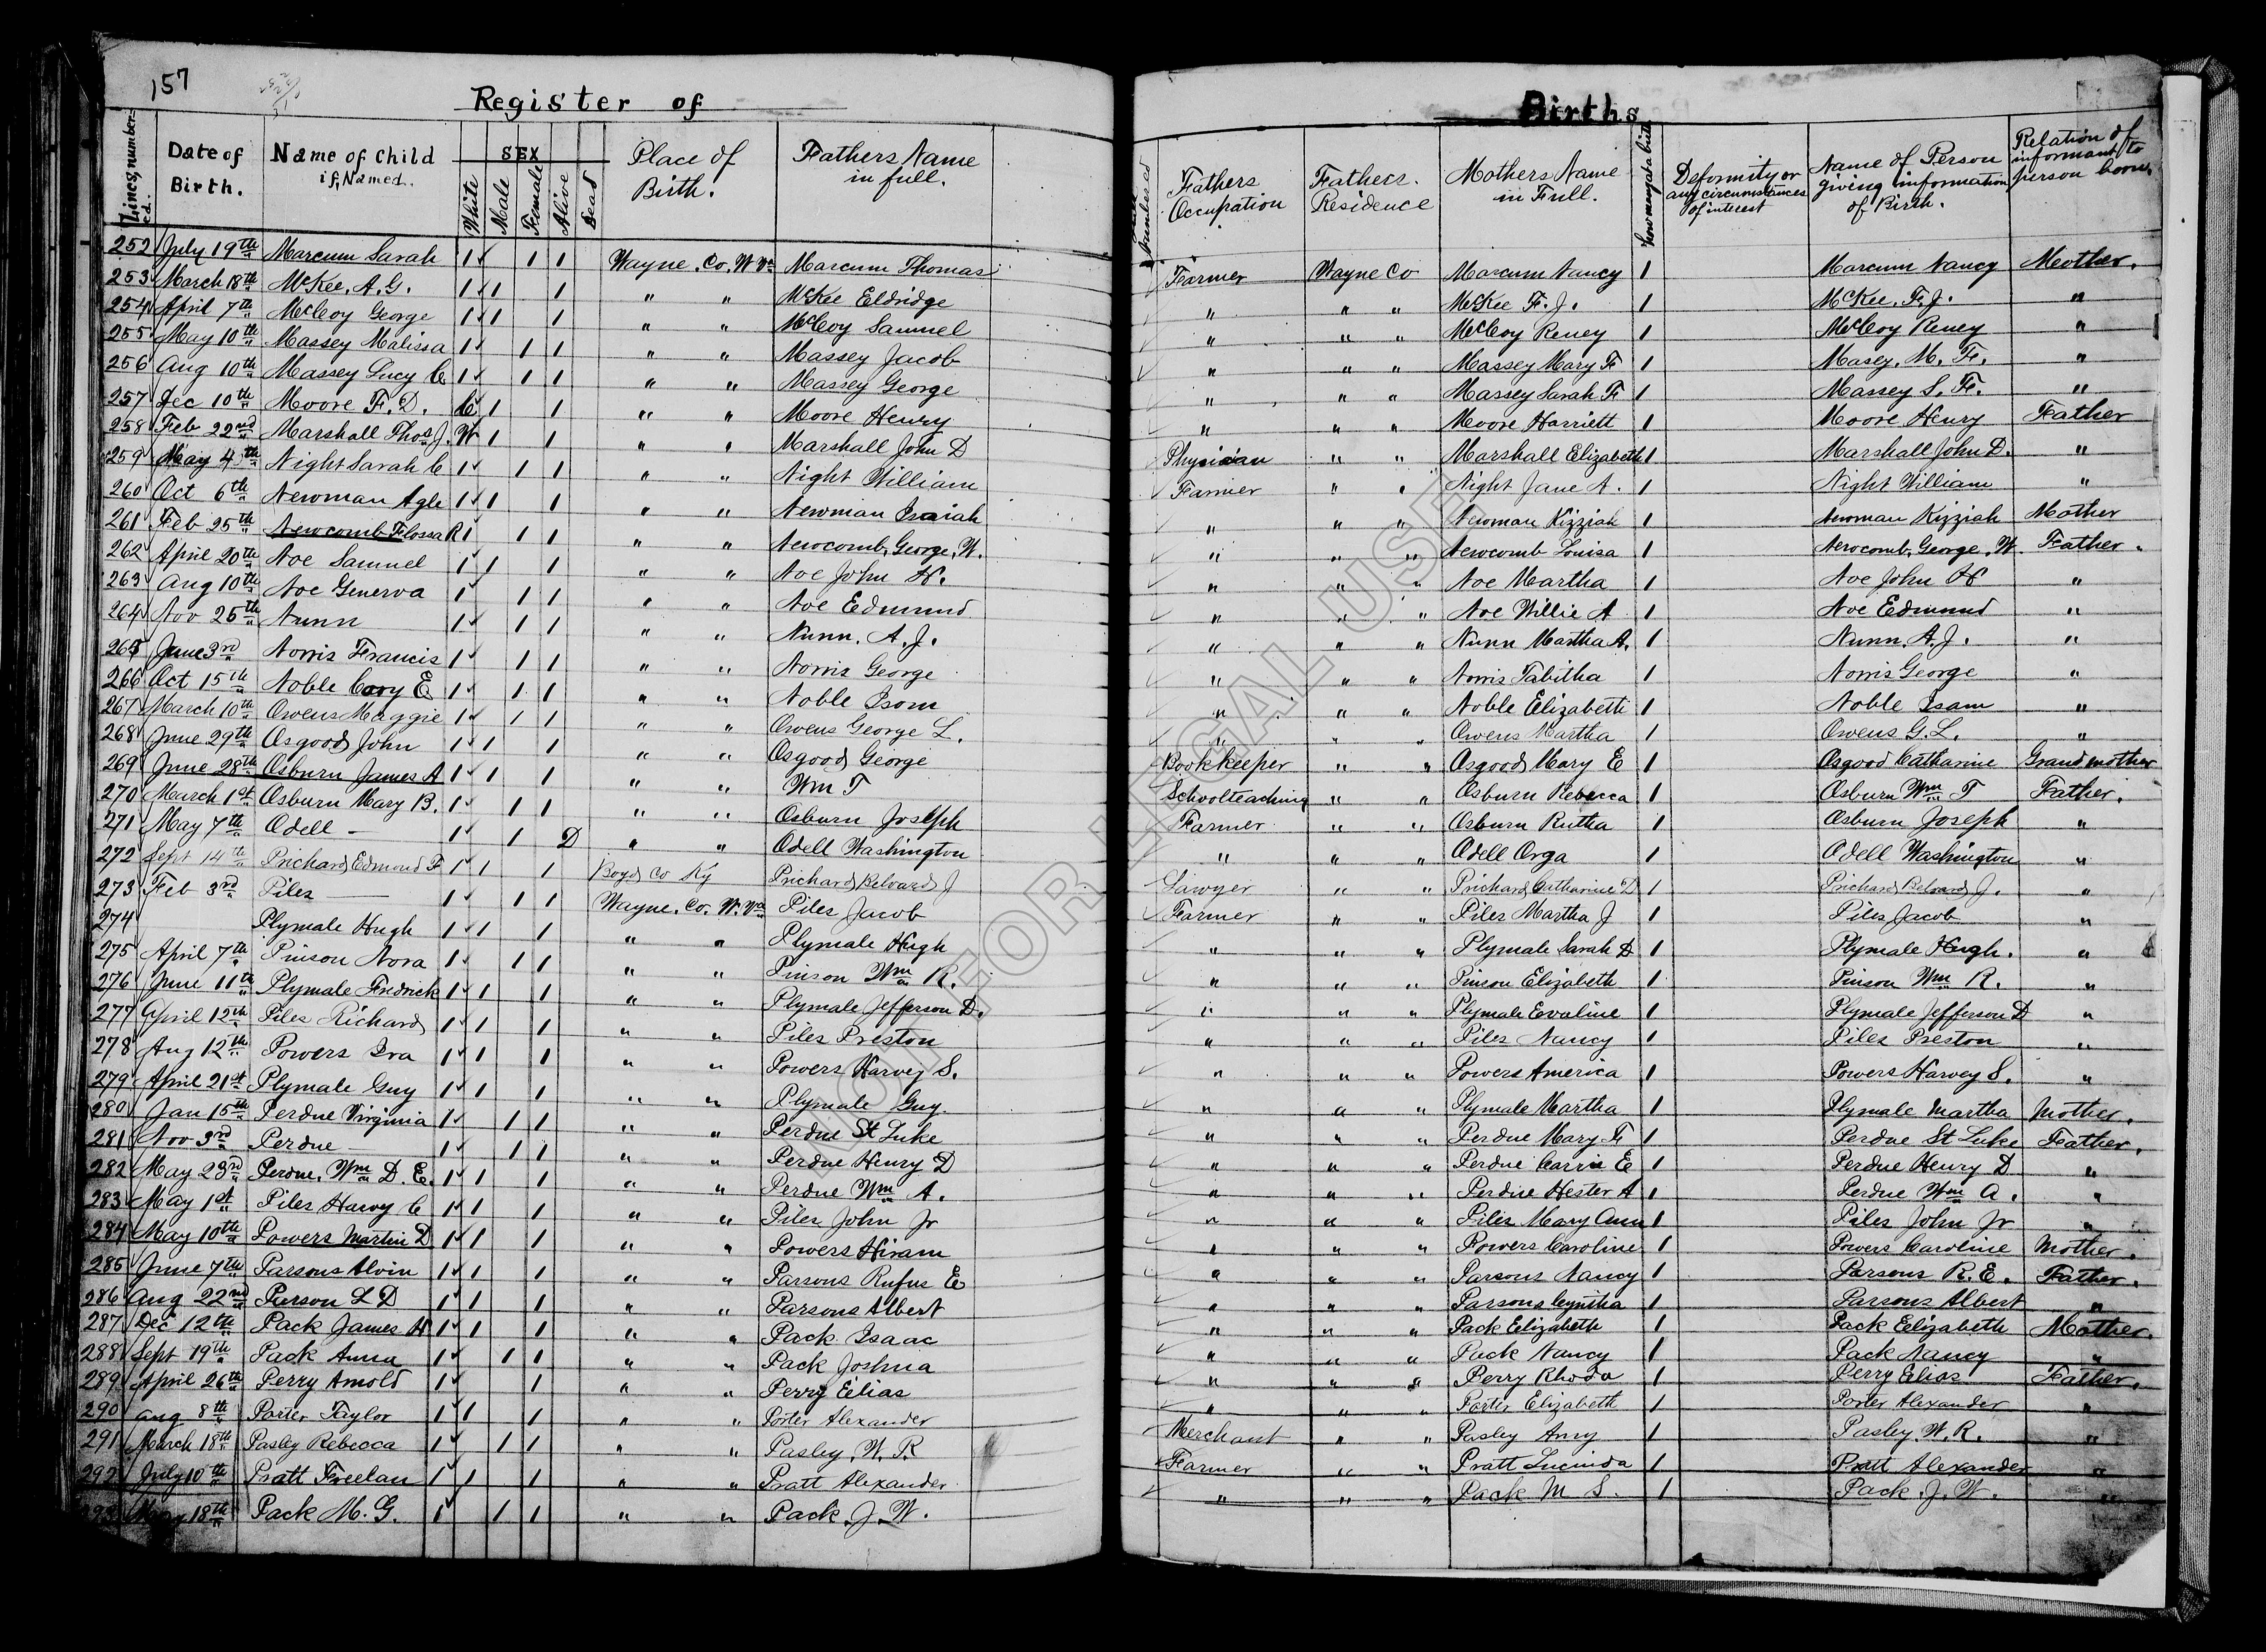 157
Register of Births
Lines, numbered. Date of Birth. Name of Child if, Named. White SEX Male Female Alive Dead Place of Birth. Fathers Name in full. numbered Fathers Occupation Fathers. Residence Mothers Name in Full. how many at a birth Deformity or any circumstances of interest Name of Person giving information of Birth. Relation of informant to person born.
252 July 19th Marcum Sarah 1 1 1 Wayne, Co, W Va Marcum Thomas Farmer Wayne Co Marcum Nancy 1 Marcum Nancy Mother.
253 March 18th McKee, A. G. 1 1 1 " " McKee Eldridge " " " McKee F. J. 1 McKee, F. J. "
254 April 7th McCoy George 1 1 1 " " McCoy Samuel " " " McCoy Reney 1 McCoy Reney "
255 May 10th Massey Malissa 1 1 1 " " Massey Jacob " " " Massey Mary F 1 Masey, M. F. "
256 Aug 10th Massey Lucy C 1 1 1 " " Massey George " " " Massey Sarah F 1 Massey S. F. "
257 Dec 10th Moore F. D. C 1 1 " " Moore Henry " " " Moore Harriett 1 Moore Henry Father
258 Feb 22nd Marshall Thos J. W 1 1 " " Marshall John D Physician " " Marshall Elizabeth 1 Marshall John D. "
259 May 4th Night Sarah C 1 1 1 " " Night William Farmer " " Night Jane A. 1 Night William "
260 Oct 6th Newman Agle 1 1 1 " " Newman Isaiah " " " Newman Kizziah 1 Newman Kizziah Mother
261 Feb 25th Newcomb Flossa R 1 1 1 " " Newcomb, George, W. " " " Newcomb Louisa 1 Newcomb, George, W. Father.
262 April 20th Noe Samuel 1 1 1 " " Noe John H. " " " Noe Martha 1 Noe John H "
263 Aug 10th Noe Generva 1 1 1 " " Noe Edmund " " " Noe Willie A 1 Noe Edmund "
264 Nov 25th Nunn 1 1 1 " " Nunn, A. J. " " " Nunn Martha A. 1 Nunn, A. J. "
265 June 3rd Norris Francis 1 1 1 " " Norris George " " " Norris Tabitha 1 Norris George "
266 Oct 15th Noble Cary E 1 1 1 " " Noble Isom " " " Noble Elizabeth 1 Noble Isam "
267 March 10th Owens Maggie 1 1 1 " " Owens George L. " " " Owens Martha 1 Owens G. L. "
268 June 29th Osgood John 1 1 1 " " Osgood George Bookkeeper " " Osgood Mary E 1 Osgood Catharine Grandmother
269 June 28th Osburn James A 1 1 1 " " Wm T Schoolteaching " " Osburn Rebecca 1 Osburn Wm T Father.
270 March 1st Osburn Mary B. 1 1 1 " " Osburn Joseph Farmer " " Osburn Rutha 1 Osburn Joseph "
271 May 7th Odell - 1 1 D " " Odell Washington " " " Odell Orga 1 Odell Washington "
272 Sept 14th Prichard Edmond F 1 1 1 Boyd Co Ky Prichard Belvard J Lawyer " " Prichard Catharine D 1 Prichard Belvard J. "
273 Feb 3rd Piles - 1 1 1 Wayne, Co. W. Va Piles Jacob Farmer " " Piles Martha J 1 Piles Jacob "
274 Plymale Hugh 1 1 1 " " Plymale Hugh " " " Plymale Sarah D 1 Plymale Hugh. "
275 April 7th Pinson Nora 1 1 1 " " Pinson Wm R. " " " Pinson Elizabeth 1 Pinson Wm R. "
276 June 11th Plymale Fredrick 1 1 1 " " Plymale Jefferson D. " " " Plymale Evaline 1 Plymale Jefferson D "
277 April 12th Piles Richard 1 1 1 " " Piles Preston " " " Piles Nancy 1 Piles Preston "
278 Aug 12th Powers Ira 1 1 1 " " Powers Harvey S. " " " Powers America 1 Powers Harvey S. "
279 April 21st Plymale Guy 1 1 1 " " Plymale Guy. " " " Plymale Martha 1 Plymale Martha Mother.
280 Jan 15th Perdue Virginia 1 1 1 " " Perdue St Luke " " " Perdue Mary F 1 Perdue St Luke Father.
281 Nov 3rd Perdue - 1 1 1 " " Perdue Henry D " " " Perdue Carrie E 1 Perdue Henry D "
282 May 23rd Perdue, Wm D. E. 1 1 1 " " Perdue Wm A. " " " Perdue Hester A 1 Perdue Wm A. "
283 May 1st Piles Harvy C 1 1 1 " " Piles John Jr " " " Piles Mary Ann 1 Piles John Jr "
284 May 10th Powers Martin D 1 1 1 " " Powers Hiram " " " Powers Caroline 1 Powers Caroline Mother.
285 June 7th Parsons Alvin 1 1 1 " " Parsons Rufus E " " " Parsons Nancy 1 Parsons R. E. Father.
286 Aug 22nd Parson L D 1 1 1 " " Parsons Albert " " " Parsons Cyntha 1 Parsons Albert "
287 Dec 12th Pack James H 1 1 1 " " Pack Isaac " " " Pack Elizabeth 1 Pack Elizabeth Mother.
288 Sept 19th Pack Anna 1 1 1 " " Pack Joshua " " " Pack Nancy 1 Pack Nancy "
289 April 26th Perry Arnold 1 1 " " Perry Elias " " " Perry Rhoda 1 Perry Elias Father.
290 Aug 8th Porter Taylor 1 1 1 " " Porter Alexander " " " Porter Elizabeth 1 Porter Alexander "
291 March 18th Pasley Rebecca 1 1 1 " " Pasley, W. R Merchant " " Pasley Amy 1 Pasley, W. R. "
292 July 10th Pratt Freelan 1 1 1 " " Pratt Alexander Farmer " " Pratt Lucinda 1 Pratt Alexander "
293 May 18th Pack M. G. 1 1 1 " " Pack, J. W. " " " Pack M S. 1 Pack, J. W. "
NOT FOR LEGAL USE